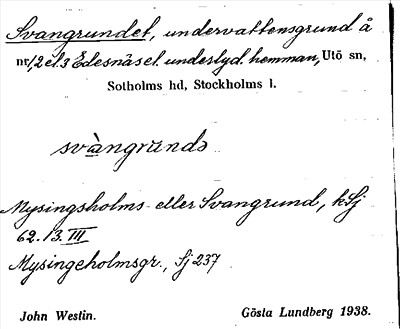 Svangrundet, undervattensgrund å
nr 1,2 el. 3 Edesnäs el. underlyd. hemman, Utö sn,
Sotholms hd, Stockholms l.
svàngründə
Mysingsholms- eller Svangrund, kSj
62. 13. III
Mysingeholmsgr., Sj 237
John Westin.
Gösta Lundberg 1938.